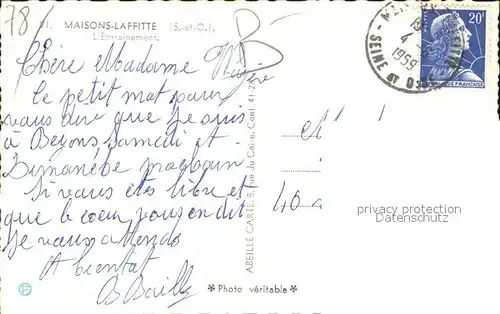 78
51. MAISONS-LAFFITTE (S.-et-O.).
L'Entraînement.
Chère Madame
le petit mot pour
vous dire que je suis
à Bezons samedi et
Dimanche
Si vous êtes libre et
que le coeur vous en dit
je vous attends
A bientot
B Bailly
ABEILLE CARTE, 8, rue du Caire, Cent. 41-28
* Photo véritable *
40
20F
4
1959
SEINE ET OISE
FRANÇAISE
privacy protection
Datenschutz